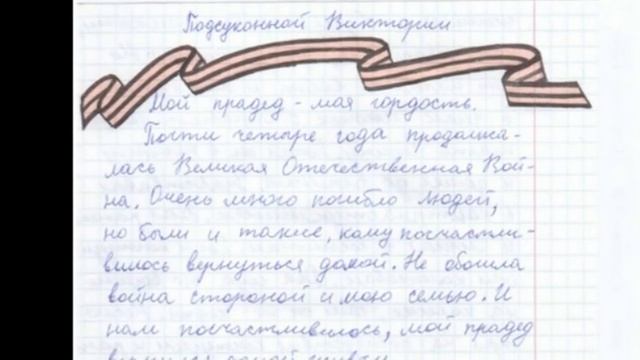 Подсуконной Виктории
Мой прадед - моя гордость.
Почти четыре года продолжа-
лась Великая Отечественная Вой-
на. Очень много погибло людей,
но были и такие, кому посчастли-
вилось вернуться домой. Не обошла
война стороной и мою семью. И
нам посчастливилось, мой прадед